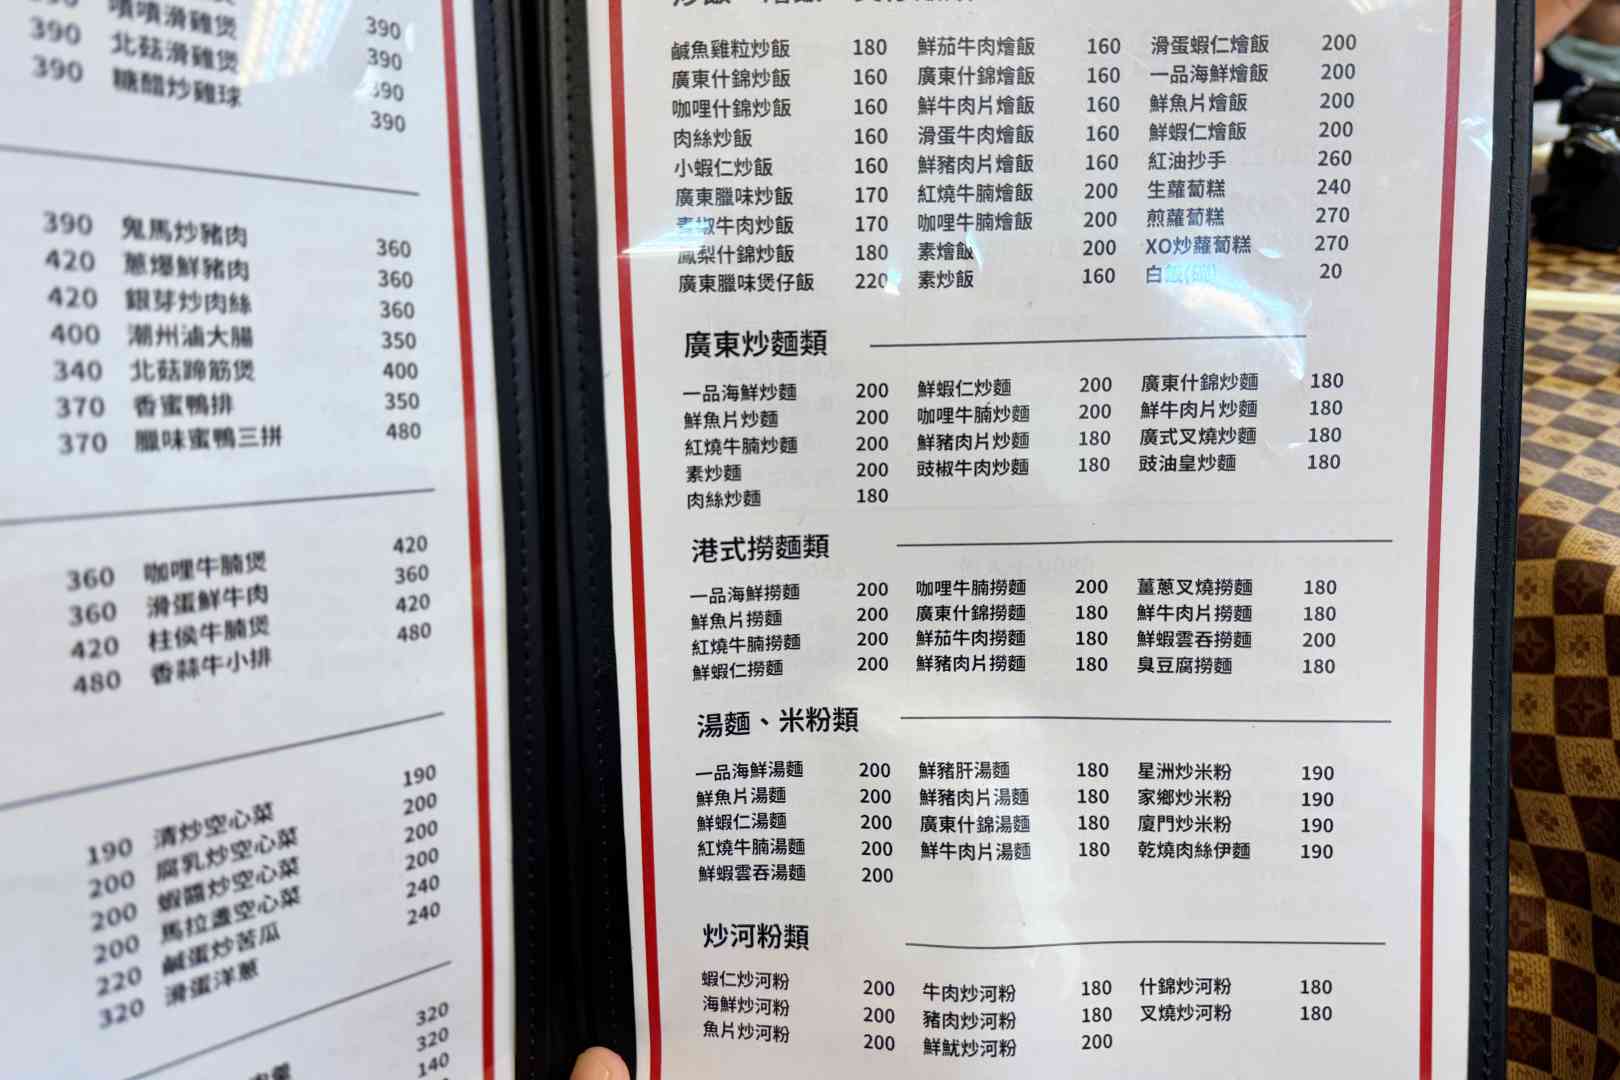 390 噴噴滑雞煲 390
390 北菇滑雞煲 390
390 糖醋炒雞球 390
390
390 鬼馬炒豬肉 360
420 蔥爆鮮豬肉 360
420 銀芽炒肉絲 360
400 潮州滷大腸 350
340 北菇蹄筋煲 400
370 香蜜鴨排 350
370 臘味蜜鴨三拼 480
360 咖哩牛腩煲 420
360 滑蛋鮮牛肉 360
420 柱侯牛腩煲 420
480 香蒜牛小排 480
190 清炒空心菜 190
200 腐乳炒空心菜 200
200 蝦醬炒空心菜 200
200 馬拉盞空心菜 200
220 鹹蛋炒苦瓜 240
320 滑蛋洋蔥 240
320
320
140
鹹魚雞粒炒飯 180 鮮茄牛肉燴飯 160 滑蛋蝦仁燴飯 200
廣東什錦炒飯 160 廣東什錦燴飯 160 一品海鮮燴飯 200
咖哩什錦炒飯 160 鮮牛肉片燴飯 160 鮮魚片燴飯 200
肉絲炒飯 160 滑蛋牛肉燴飯 160 鮮蝦仁燴飯 200
小蝦仁炒飯 160 鮮豬肉片燴飯 160 紅油抄手 260
廣東臘味炒飯 170 紅燒牛腩燴飯 200 生蘿蔔糕 240
青椒牛肉炒飯 170 咖哩牛腩燴飯 200 煎蘿蔔糕 270
鳳梨什錦炒飯 180 素燴飯 200 XO炒蘿蔔糕 270
廣東臘味煲仔飯 220 素炒飯 160 白飯(碗) 20
廣東炒麵類
一品海鮮炒麵 200 鮮蝦仁炒麵 200 廣東什錦炒麵 180
鮮魚片炒麵 200 咖哩牛腩炒麵 200 鮮牛肉片炒麵 180
紅燒牛腩炒麵 200 鮮豬肉片炒麵 180 廣式叉燒炒麵 180
素炒麵 200 豉椒牛肉炒麵 180 豉油皇炒麵 180
肉絲炒麵 180
港式撈麵類
一品海鮮撈麵 200 咖哩牛腩撈麵 200 薑蔥叉燒撈麵 180
鮮魚片撈麵 200 廣東什錦撈麵 180 鮮牛肉片撈麵 180
紅燒牛腩撈麵 200 鮮茄牛肉撈麵 180 鮮蝦雲吞撈麵 200
鮮蝦仁撈麵 200 鮮豬肉片撈麵 180 臭豆腐撈麵 180
湯麵、米粉類
一品海鮮湯麵 200 鮮豬肝湯麵 180 星洲炒米粉 190
鮮魚片湯麵 200 鮮豬肉片湯麵 180 家鄉炒米粉 190
鮮蝦仁湯麵 200 廣東什錦湯麵 180 廈門炒米粉 190
紅燒牛腩湯麵 200 鮮牛肉片湯麵 180 乾燒肉絲伊麵 190
鮮蝦雲吞湯麵 200
炒河粉類
蝦仁炒河粉 200 牛肉炒河粉 180 什錦炒河粉 180
海鮮炒河粉 200 豬肉炒河粉 180 叉燒炒河粉 180
魚片炒河粉 200 鮮魷炒河粉 200